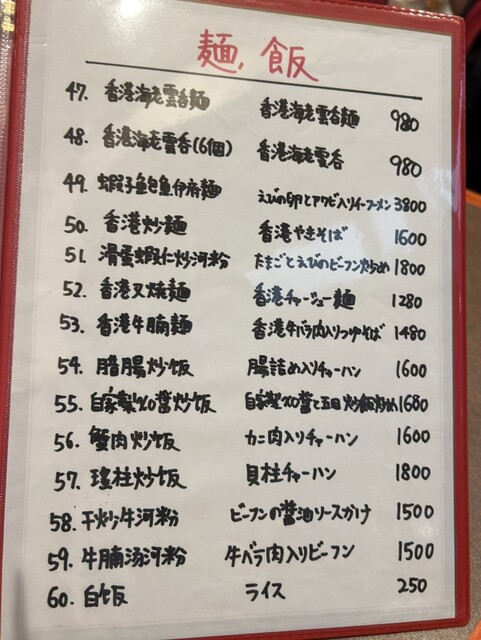 麺、飯
47. 香港海老雲呑麺 香港海老雲呑麺 980
48. 香港海老雲呑(6個) 香港海老雲呑 980
49. 蝦子鮑魚伊府麺 えびの卵とアワビ入りイーフーメン 3800
50. 香港炒麺 香港やきそば 1600
51. 滑蛋蝦仁炒河粉 たまごとえびのビーフン炒め 1800
52. 香港叉焼麺 香港チャーシュー麺 1280
53. 香港牛腩麺 香港牛バラ肉入りつゆそば 1480
54. 腊腸炒饭 腸詰め入りチャーハン 1600
55. 自家製XO醤炒饭 自家製XO醤と五目炒飯炒め 1680
56. 蟹肉炒饭 カニ肉入りチャーハン 1600
57. 瑤柱炒饭 貝柱チャーハン 1800
58. 干炒牛河粉 ビーフンの醤油ソースかけ 1500
59. 牛腩汤河粉 牛バラ肉入りビーフン 1500
60. 白饭 ライス 250